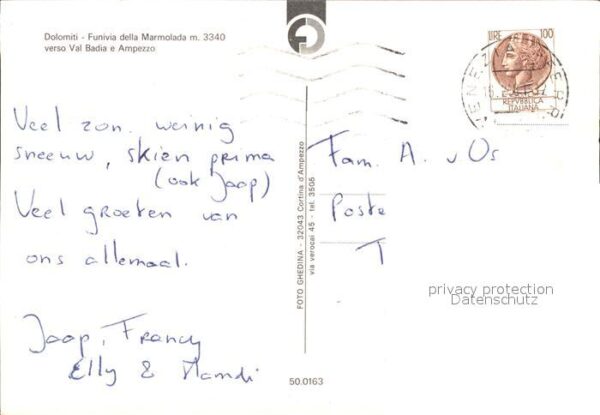 Dolomiti - Funivia della Marmolada m. 3340
verso Val Badia e Ampezzo
LIRE 100
REPVBBLICA
ITALIANA
VENEZIA
Veel zon, weinig
sneeuw, skiën prima
(ook Jaap)
Veel groeten van
ons allemaal.
Jaap, Francy
Elly & Hamdi
FOTO GHEDINA - 32043 Cortina d'Ampezzo
via verocai 45 - tal. 3505
Fam. A. v Os
Poste
T
privacy protection
Datenschutz
50.0163